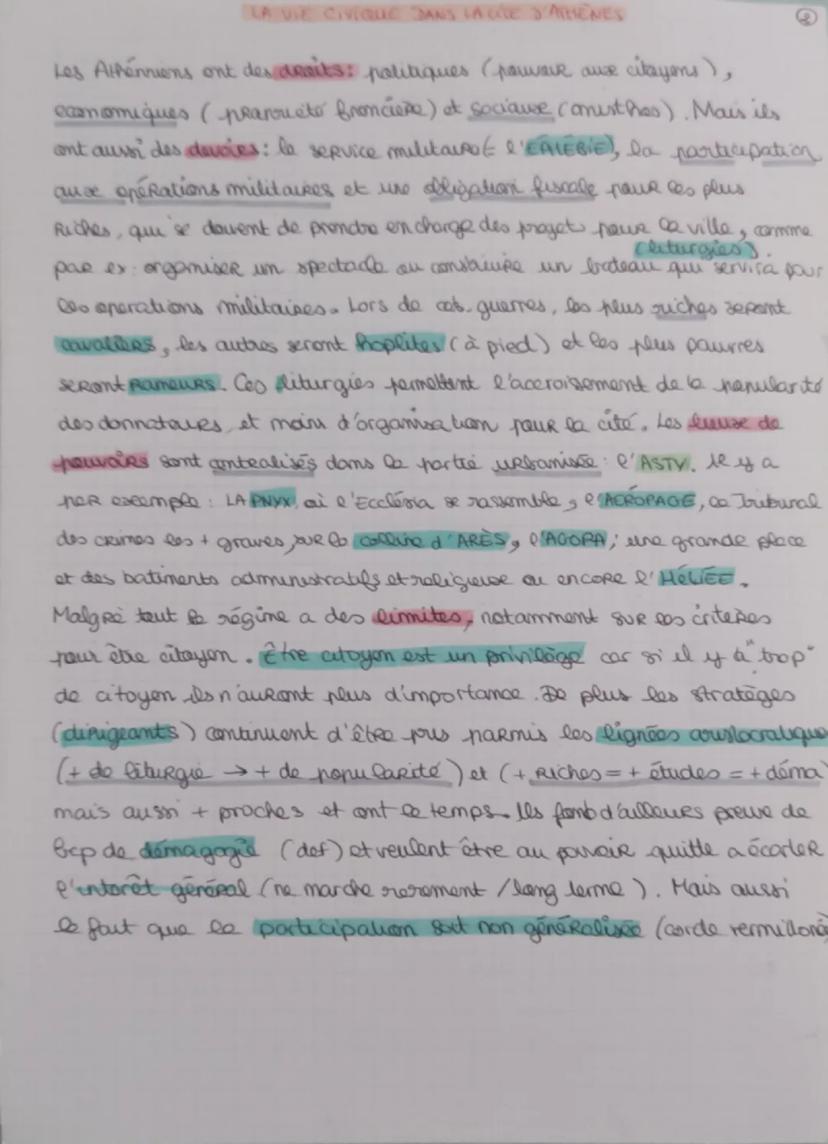 LA VIE CIVIQUE DANS LA CITE D'ATHÈNES
2
Les Athénniens ont des droits: politiques (pouvoir aux citoyens),
économiques (propriété froncière) et sociaux (misthos). Mais ils
ont aussi des devoirs: le service militaire (l'ÉPHÉBIE), la participation
aux opérations militaires et une obligation fiscale pour les plus
Riches, qui se doivent de prendre en charge des projets pour la ville, comme
(liturgies).
par ex: organiser un spectacle ou construire un bateau qui servira pour
les operations militaires. Lors de ces guerres, les plus riches seront
cavaliers, les autres seront hoplites (à pied) et les plus pauvres
seront RAMEURS. Ces liturgies permettent l'accroisement de la popularité
des donnateurs, et moins d'organisation pour la cité. Les lieux de
pouvoirs sont centralisés dans la partie urbanisée: l'ASTY. Il y a
par exemple: LA PNYX, où l'Ecclésia se rassemble, l'AÉROPAGE, le Tribunal
des crimes les + graves, sur la colline d'ARÈS, l'AGORA; une grande place
et des batiments administratifs et religieux ou encore l'HÉLIÉE.
Malgré tout le régime a des limites, notamment sur les critères
pour être citoyen. Être citoyen est un privilège car si il y a "trop"
de citoyen ils n'auront plus d'importance. De plus les stratèges
(dirigeants) continuent d'être pris parmis les lignées aristocratique
(+ de liturgie → + de popularité) et (+ Riches = + études = + déma)
mais aussi + proches et ont le temps. Ils font d'ailleurs preuve de
bcp de démagogie (def) et veulent être au pouvoir quitte a écarter
l'intérêt général (ne marche rarement / long terme). Mais aussi
le fait que la participation soit non généralisée (corde vermillone